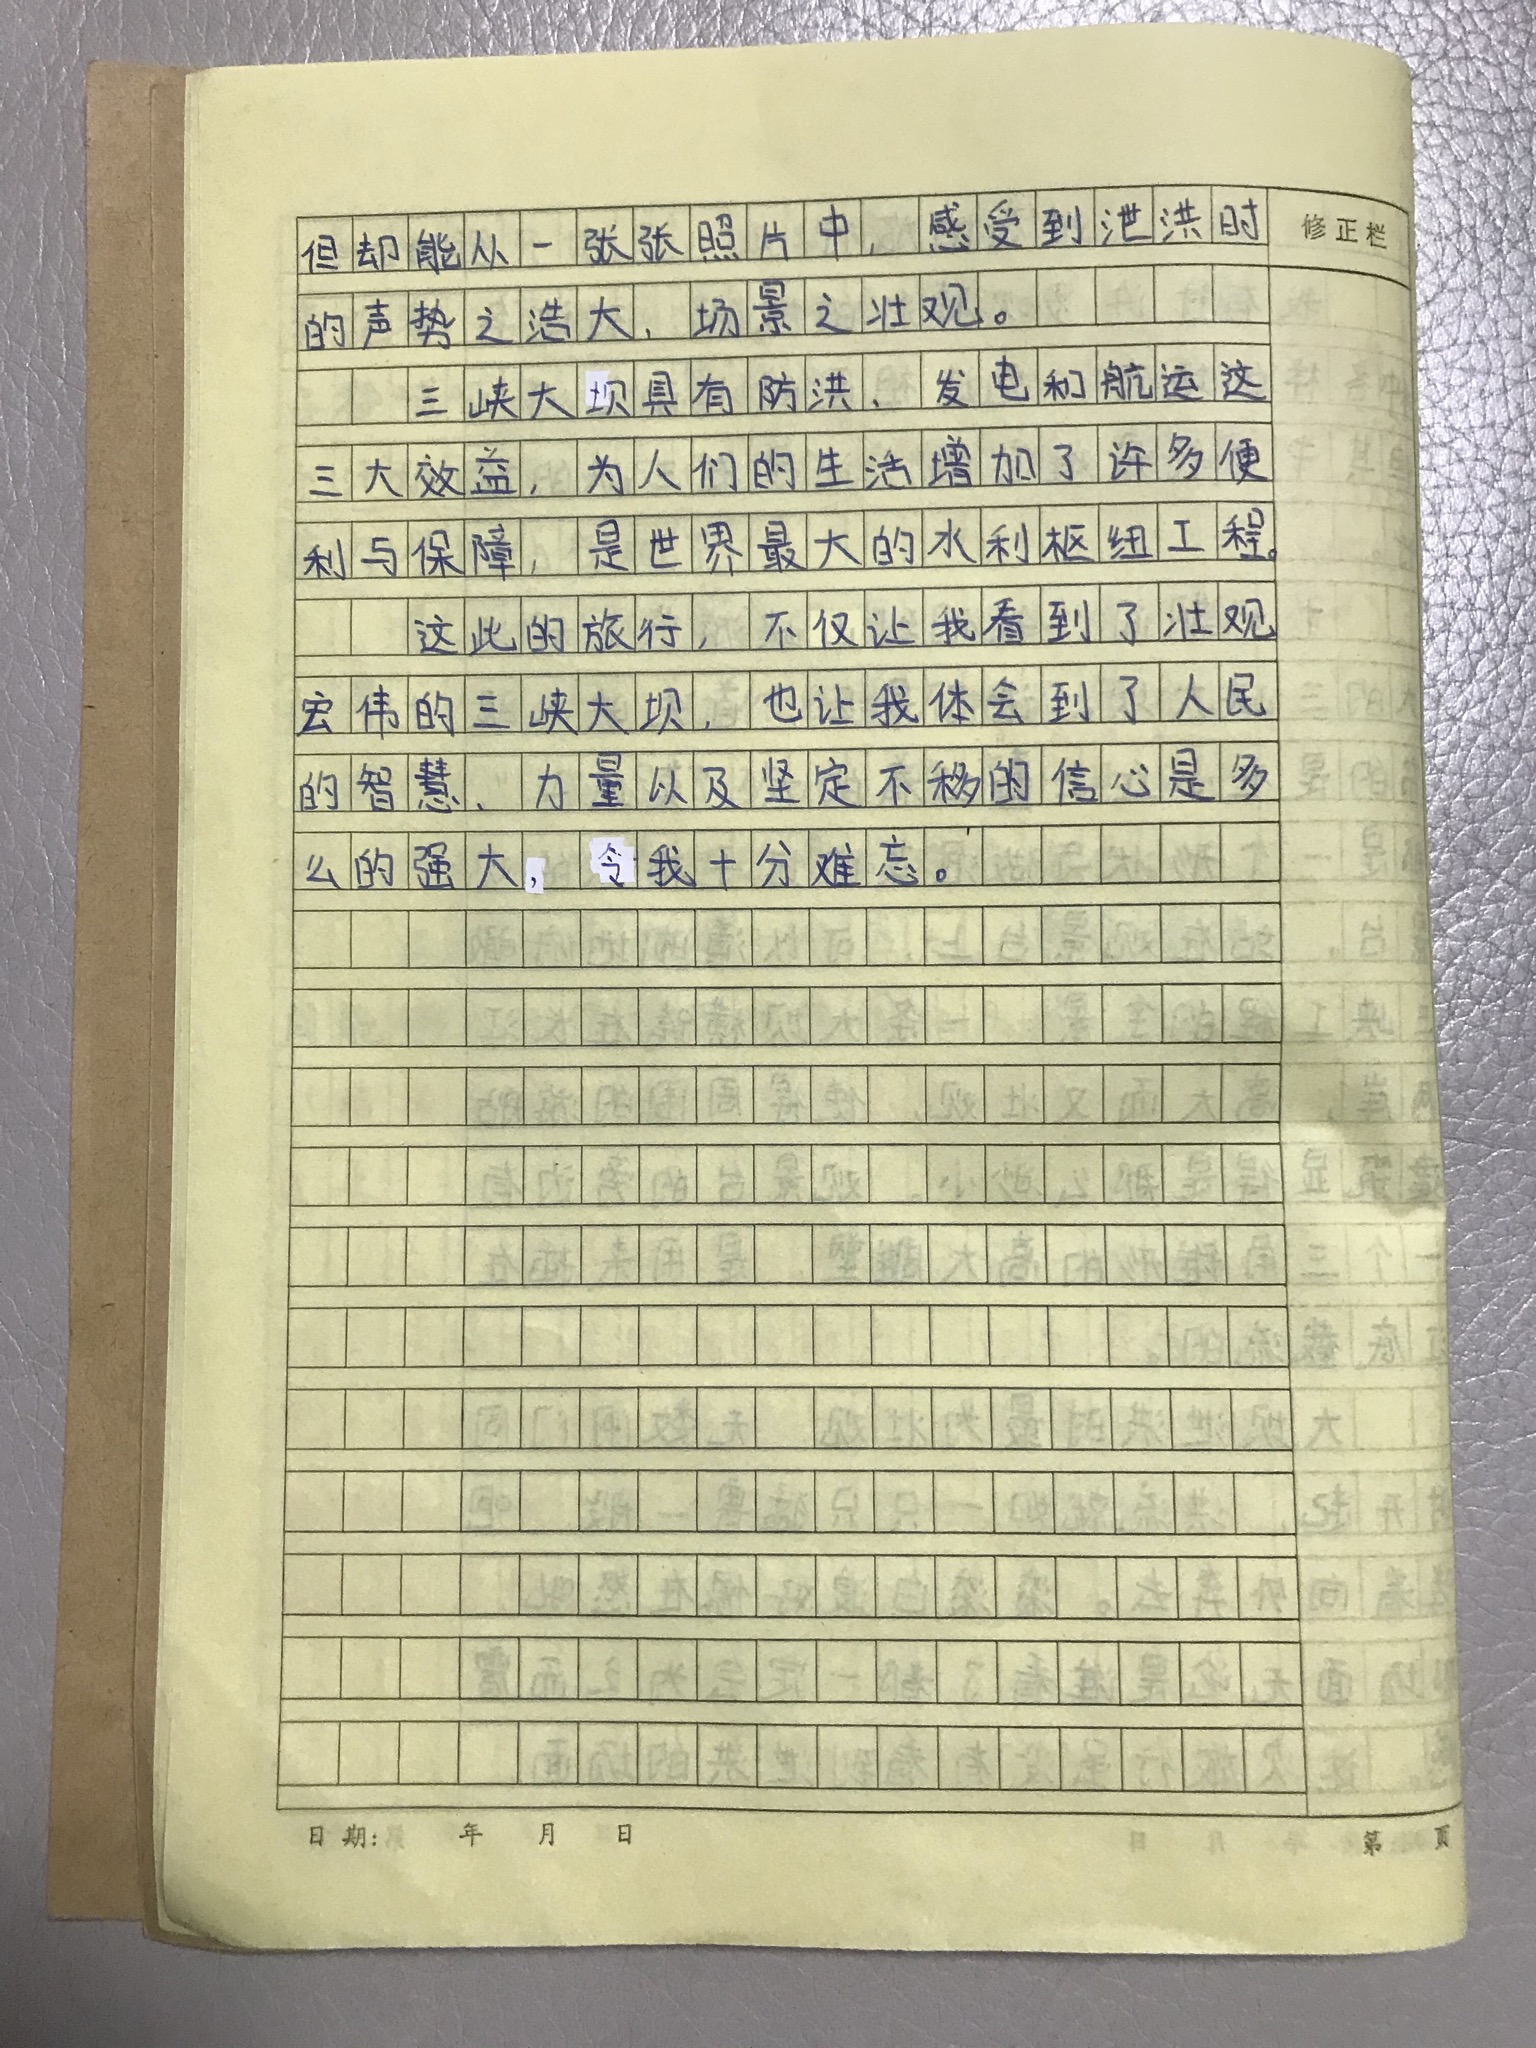 但却能从一张张照片中，感受到泄洪时
修正栏
的声势之浩大，场景之壮观。
三峡大坝具有防洪、发电和航运这
三大效益，为人们的生活增加了许多便
利与保障，是世界最大的水利枢纽工程。
这此的旅行，不仅让我看到了壮观
宏伟的三峡大坝，也让我体会到了人民
的智慧、力量以及坚定不移的信心是多
么的强大，令我十分难忘。
日期： 年 月 日
第 页